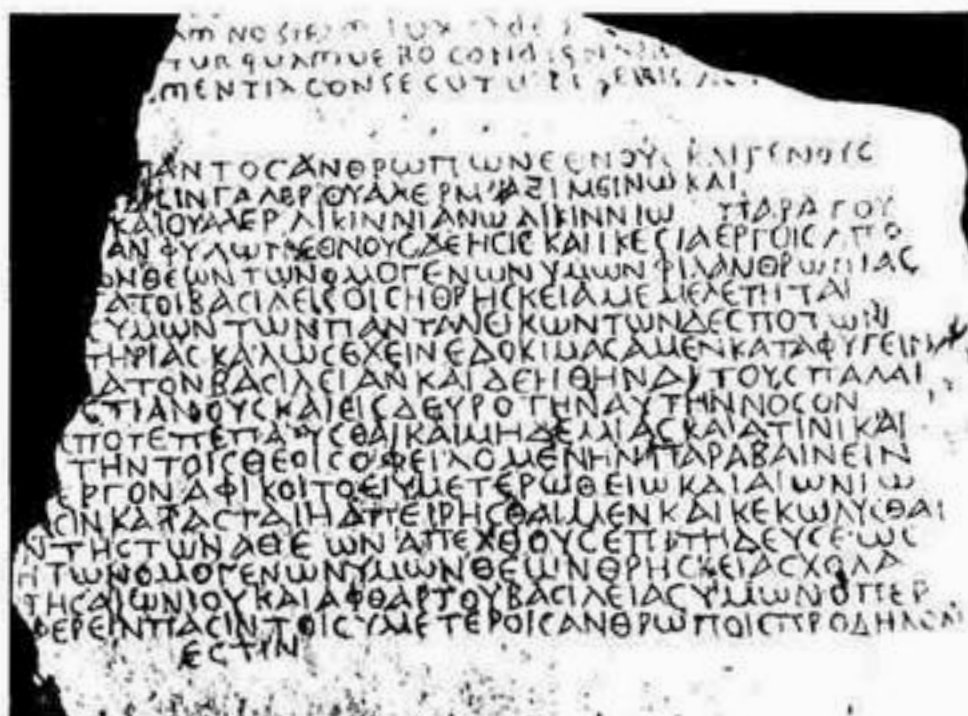 NOSTRAM IUXTA DE
TUR QUAMUERO CONDIGN
MENTIA CONSECUTU
ΠΑΝΤΟϹ ΑΝΘΡΩΠΩΝ ΕΘΝΟΥϹ ΚΑΙ ΓΕΝΟΥϹ
ϹΙΝ ΓΑΛ ΒΡΙΟΥΑΛΕΡ ΜΑΞΙΜΕΙΝΩ ΚΑΙ
ΚΑΙ ΟΥΑΛΕΡ ΛΙΚΙΝΝΙΑΝΩ ΛΙΚΙΝΝΙΩ ΠΑΡΑ ΤΟΥ
ΑΝΦΥΛΩΝ ΕΘΝΟΥϹ ΔΕΗϹΙϹ ΚΑΙ ΙΚΕϹΙΑ ΕΡΓΟΙϹ ΑΠΟ
ΩΝ ΘΕΩΝ ΤΩΝ ΟΜΟΓΕΝΩΝ ΥΜΩΝ ΦΙΛΑΝΘΡΩΠΙΑϹ
ΑΤΟΙ ΒΑϹΙΛΕΙϹ ΟΙϹ Η ΘΡΗϹΚΕΙΑ ΜΕΜΕΛΕΤΗΤΑΙ
Ϲ ΥΜΩΝ ΤΩΝ ΠΑΝΤΑ ΝΕΙΚΩΝΤΩΝ ΔΕϹΠΟΤΩΝ
ΤΗΡΙΑϹ ΚΑΛΩϹ ΕΧΕΙΝ ΕΔΟΚΙΜΑϹΑΜΕΝ ΚΑΤΑΦΥΓΕΙΝ
ΑΤΟΝ ΒΑϹΙΛΕΙΑΝ ΚΑΙ ΔΕΗΘΗΝΑΙ ΤΟΥϹ ΠΑΛΑΙ
ϹΤΙΑΝΟΥϹ ΚΑΙ ΕΙϹ ΔΕΥΡΟ ΤΗΝ ΑΥΤΗΝ ΝΟϹΟΝ
ΠΟΤΕ ΠΕΠΑΥϹΘΑΙ ΚΑΙ ΜΗΔΕΜΙΑϹ ΚΑΙΑ ΤΙΝΙ ΚΑΙ
ΤΗΝ ΤΟΙϹ ΘΕΟΙϹ ΟΦΕΙΛΟΜΕΝΗΝ ΠΑΡΑΒΑΙΝΕΙΝ
ΕΡΓΟΝ ΑΦΙΚΟΙΤΟ ΕΙ ΥΜΕΤΕΡΩ ΘΕΙΩ ΚΑΙ ΑΙΩΝΙΩ
ϹΙΝ ΚΑΤΑϹΤΑΙΗ ΑΠΕΙΡΗϹΘΑΙ ΜΕΝ ΚΑΙ ΚΕΚΩΛΥϹΘΑΙ
Ν ΤΗϹ ΤΩΝ ΑΘΕΩΝ ΑΠΕΧΘΟΥϹ ΕΠΙΤΗΔΕΥϹΕΩϹ
Η ΤΩΝ ΟΜΟΓΕΝΩΝ ΥΜΩΝ ΘΕΩΝ ΘΡΗϹΚΕΙΑϹ ΧΟΛΑ
ΤΗϹ ΑΙΩΝΙΟΥ ΚΑΙ ΑΦΘΑΡΤΟΥ ΒΑϹΙΛΕΙΑϹ ΥΜΩΝ ΟΠΕΡ
ΦΕΡΕΙΝ ΠΑϹΙΝ ΤΟΙϹ ΥΜΕΤΕΡΟΙϹ ΑΝΘΡΩΠΟΙϹ ΠΡΟΔΗΛΟΝ
ΕϹΤΙΝ